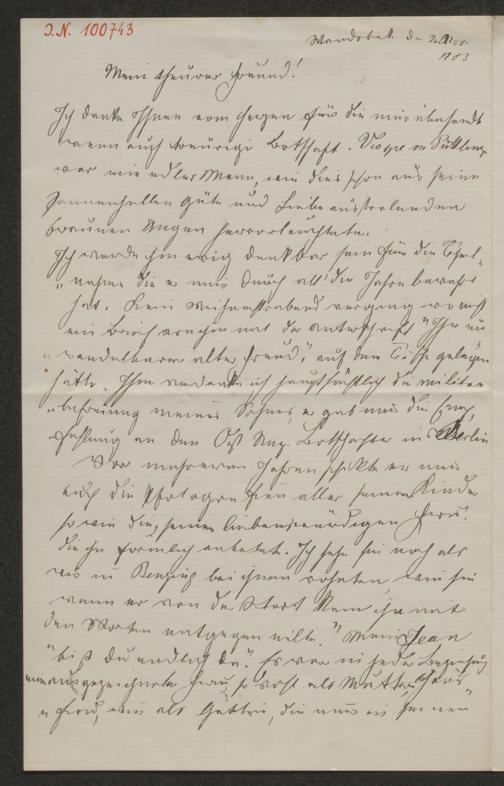 J.N. 100743
Wandsbek. d. 2. Nov.
1883
Mein theurer Freund!
Ich danke Ihnen vom Herzen für die mir übersandte
wenn auch traurige Botschaft.
war ein edler Mann, wie dies schon aus seinen
sonnenhellen Güte und Liebe ausstralenden
braunen Augen hervorleuchtete.
Ich werde ihm ewig dankbar sein für die Theil-
"nahme die er mir durch all' die Jahre bewahrt
hat. Kein Weihnachtsabend verging wo nicht
ein Brief von ihm mit der Unterschrift "Ihr un
"wandelbarer alter Freund," auf dem Tische gelegen
hätte. Ihm verdanke ich hauptsächlich die Militär
"befreiung meines Sohnes, er gab mir die Emp
"fehlung an den Ost. Ung. Botschafter in Berlin
Vor mehreren Jahren schickte er mir
auch die Photografien aller seiner Kinder
so wie die seiner liebenswürdigen Frau,
die ihn förmlich anbetete. Ich sehe sie noch als
wir in bei ihnen wohnten, wie sie
wenn er von der Stadt kam ihm mit
den Worten entgegen eilte. "Mein Jean
"bist du endlich da". Es war in jeder Beziehung
eine ausgezeichnete Frau, so wohl als Mutter, Haus
"frau, wie als Gattin, die nur in seinen